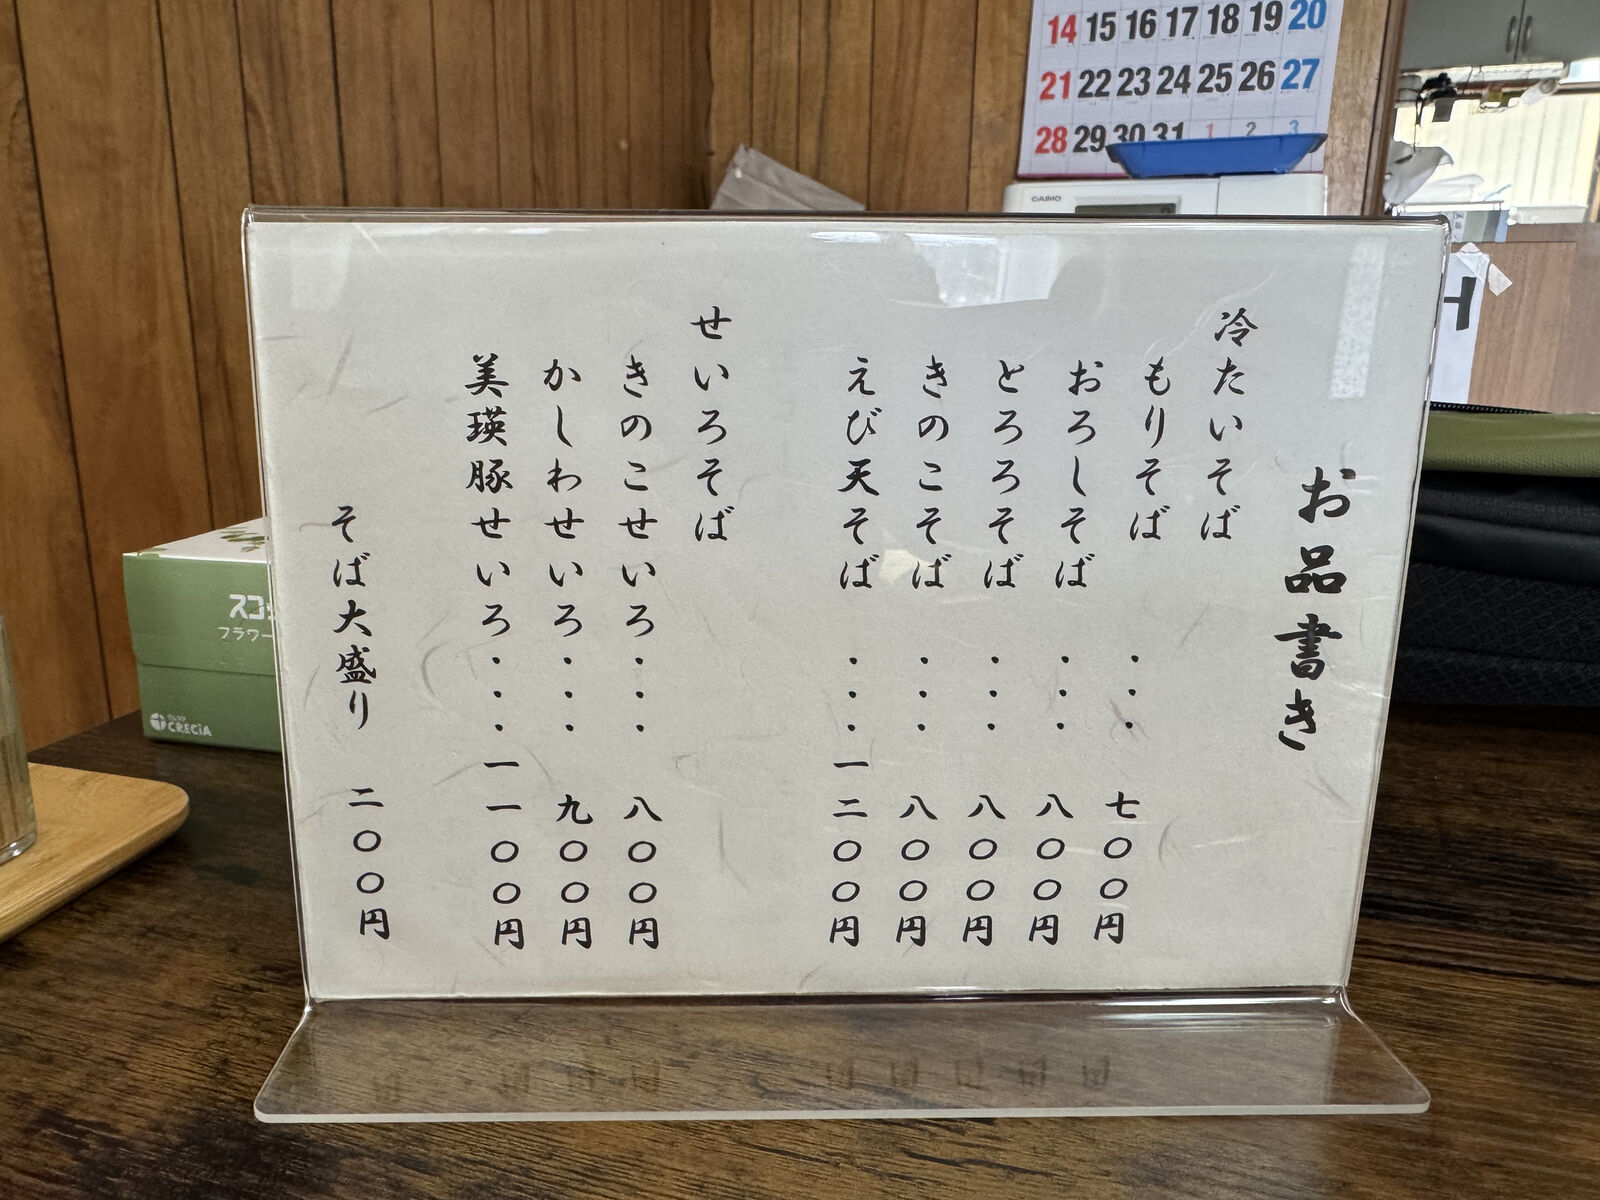 お品書き
冷たいそば
もりそば ・・・ 七〇〇円
おろしそば ・・・ 八〇〇円
とろろそば ・・・ 八〇〇円
きのこそば ・・・ 八〇〇円
えび天そば ・・・ 一二〇〇円
せいろそば
きのこせいろ・・・ 八〇〇円
かしわせいろ・・・ 九〇〇円
美瑛豚せいろ・・・ 一一〇〇円
そば大盛り 二〇〇円
14 15 16 17 18 19 20
21 22 23 24 25 26 27
28 29 30 31 1 2 3
CASIO
フラワー
CRECIA
H